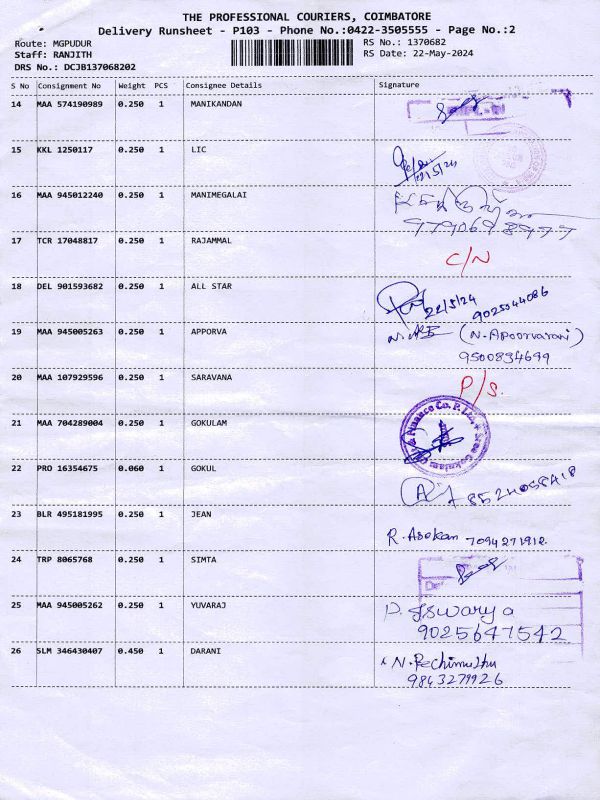 THE PROFESSIONAL COURIERS, COIMBATORE
Delivery Runsheet - P103 - Phone No.:0422-3505555 - Page No.:2
Route: MGPUDUR
Staff: RANJITH
DRS No.: DCJB137068202
RS No.: 1370682
RS Date: 22-May-2024
S No Consignment No Weight PCS Consignee Details Signature
14 MAA 574190989 0.250 1 MANIKANDAN
15 KKL 1250117 0.250 1 LIC
16 MAA 945012240 0.250 1 MANIMEGALAI
17 TCR 17048817 0.250 1 RAJAMMAL C/N
18 DEL 901593682 0.250 1 ALL STAR 22/5/24 9025044086
19 MAA 945005263 0.250 1 APPORVA (N. Apoorvarani)
9500834699
20 MAA 107929596 0.250 1 SARAVANA P/S.
21 MAA 704289004 0.250 1 GOKULAM
22 PRO 16354675 0.060 1 GOKUL
23 BLR 495181995 0.250 1 JEAN R. Asokan 7094271912
24 TRP 8065768 0.250 1 SIMTA
25 MAA 945005262 0.250 1 YUVARAJ P. Iswarya
9025647542
26 SLM 346430407 0.450 1 DARANI N. Pechimuthu
9843279926